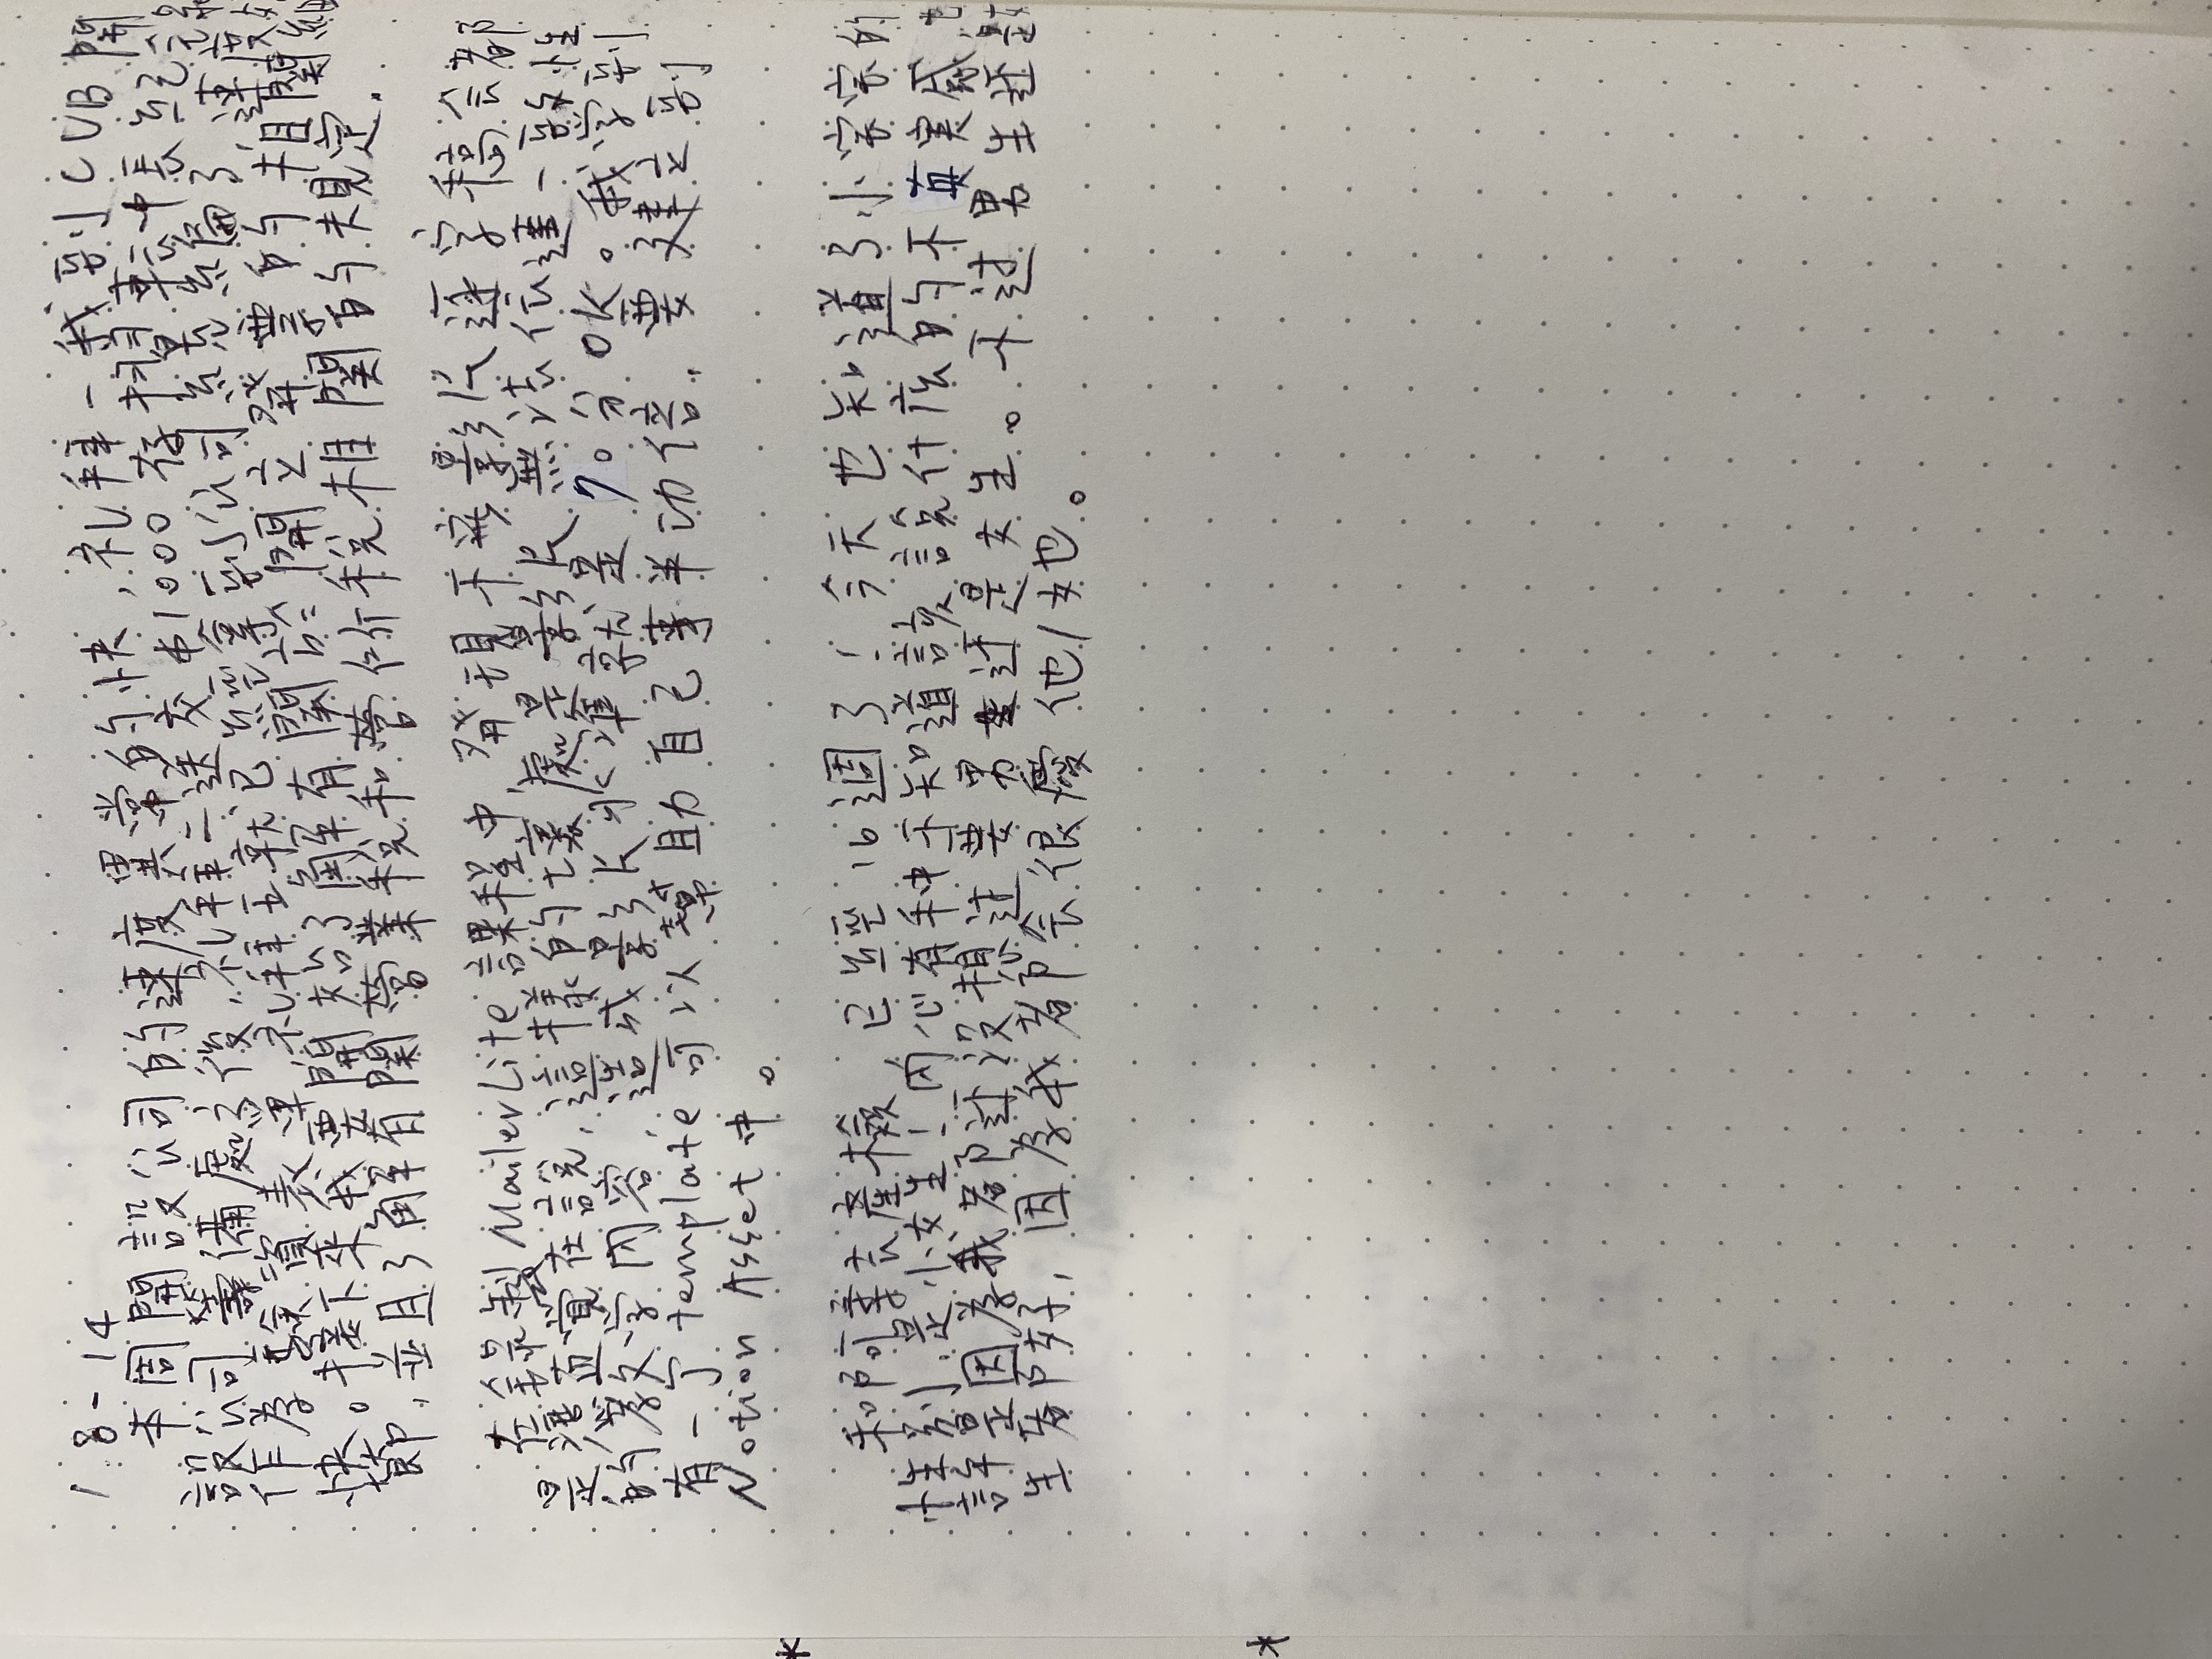 1.8-14
本周開設公司的速度異常的快,礼拜一我到CUB開
設公司籌備處后後,礼拜二送交中1000存摺影本帳紀錄
作為驗資表單,礼拜五就已經拿到公司統編了,速度好
快。接下來我要開始了解有關於開立發票的相關細
節,並且了解有關營業稅和營所稅相關的規定.
在錄製MailerLite課程中,發現不寫影片逐字稿会都
是憑直覺在說,這樣的壞處是影片無法伝達一致性
的教学内容,造成影片水準就是70分OK。我学到
有一个template可以幫助自己事半功倍,要建立到
Notion Asset中。
和阿柔去產檢,已經16週了!今天也知道了小宝宝的
性別,是小女生!内心有种不知道該說什麼的不真実感,也
許是因為我都还沒想过要男生还是女生。不过男生还是女
生都好,因為我都会很愛他/她。
*
*